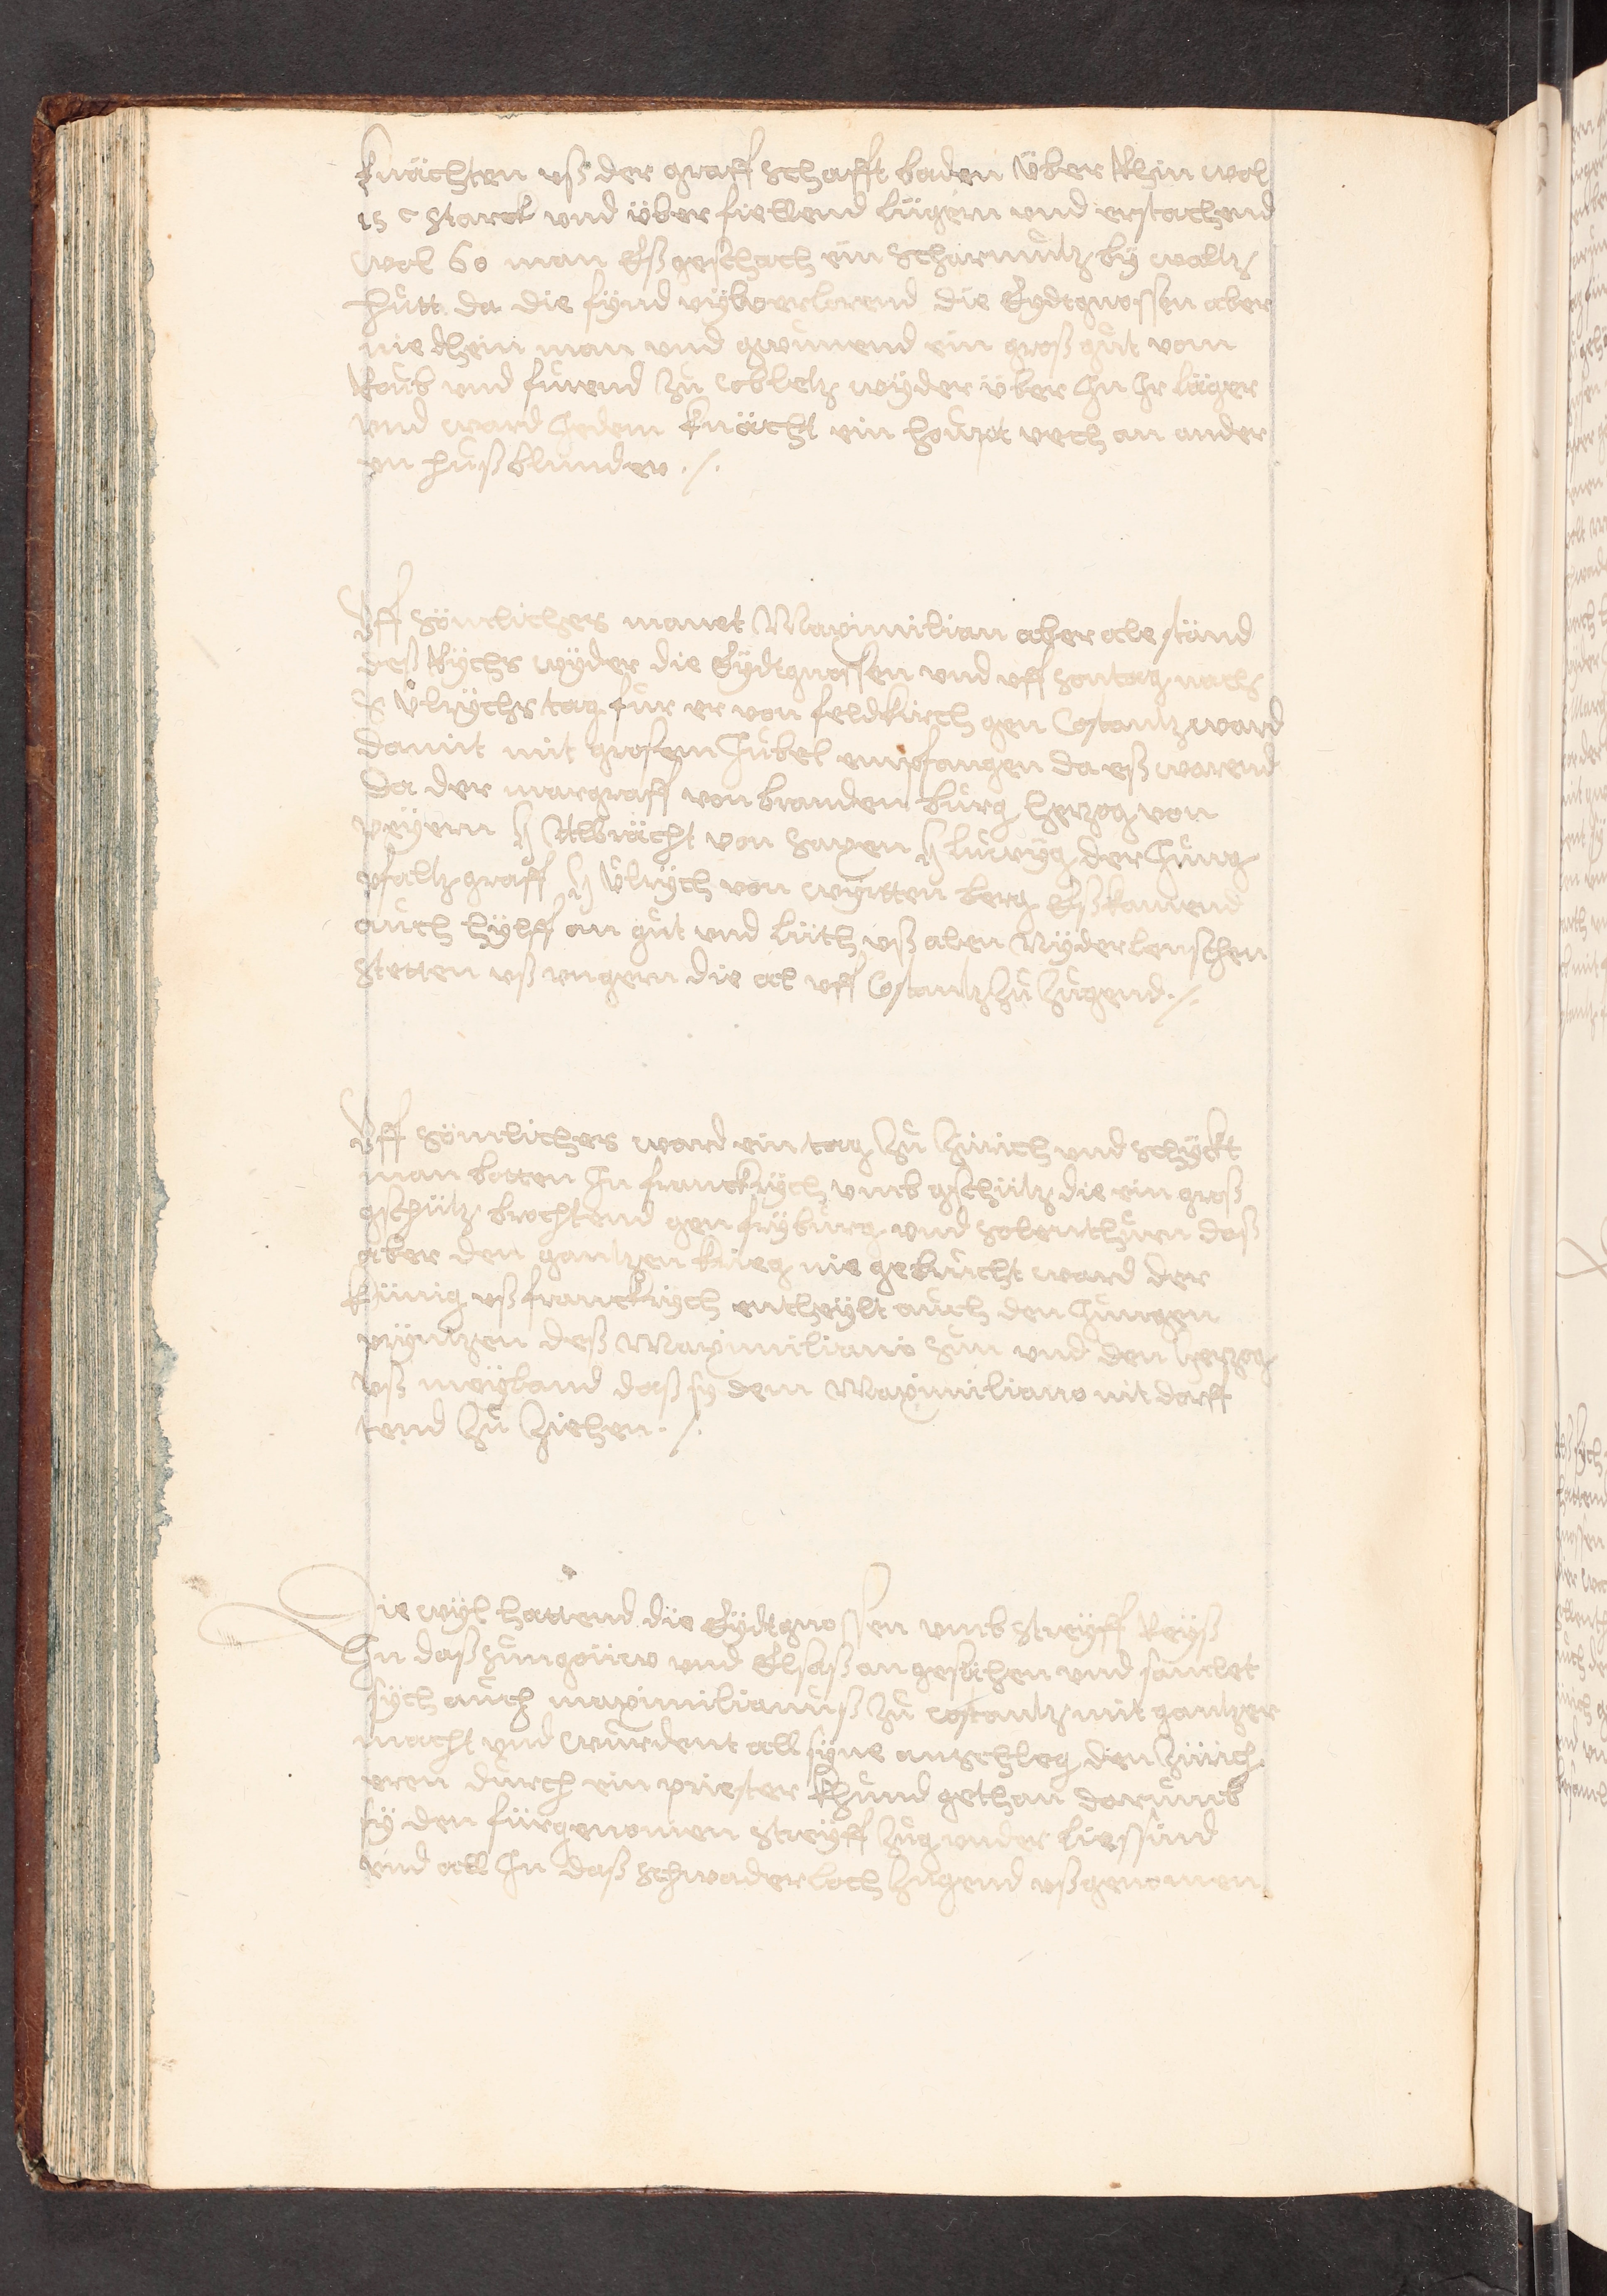 knächten uß der graff schafft baden über Rhin wol
15 c starck und über fiellend lügern und erstachend
wol 60 man Eß geschach ein scharmütz by waltz
hůtt da die fynd vyl verlorend die Eydtgnossen aber
nie dhein man und gwůnend ein groß gůt vom
Roůb und fůrend zů Cobletz wyder über In Ir läger
und ward Jedem knächt ein houpt vech an ander
en hußblunder ./.
Uff sömlichers manet Maximilian aber ale stand
deß Rychs wyder die Eydtgnossen und uff sontag nach
S Ůlrychs tag fůr er von feldkirch gen Costantz ward
damit mit grosem Jubel empfangen da eß warend
da der margraff von branden burg herzog von
peyern H Albrächt von saxen H Ludwyg der Jung
pfaltzgraff H Ůlrych von wyrtten berg Eß kamend
auch hylff an gůt und lüth uß alen Nyderlenschen
stetten uß ungern die al uff Costantz zů zugend ./.
Uff sömlichers ward ein tag zů Zürich und schyckt
man botten In franckrych umb gschütz die ein groß
gschütz brochtend gen fryburg und solenthurn daß
aber den gantzen krieg nie gebrucht ward der
künig uß franckrych entheylt auch den Jungen
prynzen deß Maximiliano sun und den herzog
uß meyland daß sy dem Maximiliano nit dorff
tend zů ziehen ./.
Die wyl hattend die Eydtgnossen umb streyff Reyß
In daß sungöuw und Elsaß angesechen und samlet
sych auch maximilianuß zů Costantz mit gantzer
macht und wurdent all syne anschleg den Zürich
eren durch ein priester khund gethan darumb
sy den fürgenomen streyff zug under liessind
und all In daß schwaderloch zugend ußgenomen